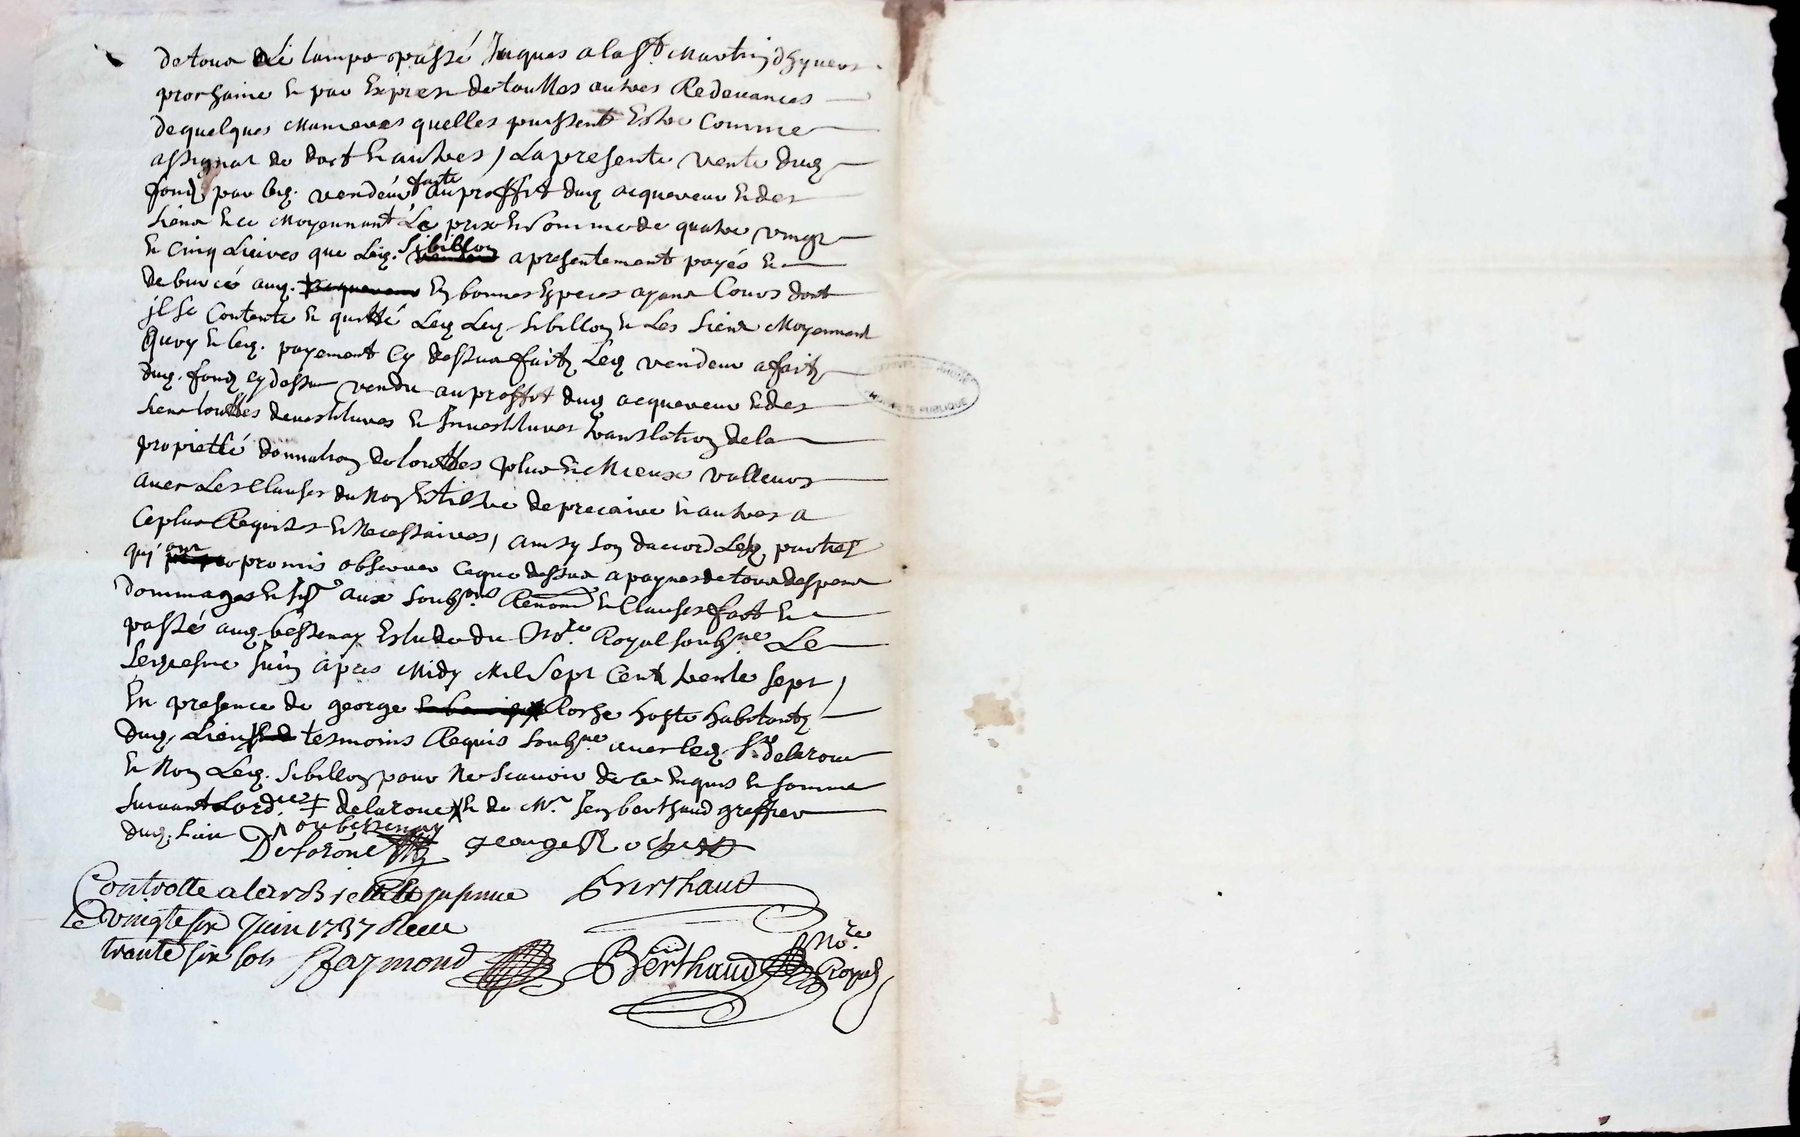 de tous Le temps passé Jusques a la st Martin dhyvers
prochaine et par Expres de touttes autres Redevances
de quelques Manieres quelles puissent Estre Comme
assignat de dost et autres, La presente vente dud.
fond par led. vendeur faitte au proffit dud acquereur et des
siens et ce Moyennant Le prix et somme de quatre vingt
et Cinq Livres que Led. Sibillon a presentement payés et
deburcé aud. En bonnes Especes ayant Cours dont
jl se Contente et quitté Led Sibillon et Les siens Moyennant
Quoy et led. payement Cy dessus fait Led vendeur a fait
dud. fond cy dessus vendu au proffit dud acquereur et des
siens touttes devestitures et Jnvestitures translation de la
proprietté donnation de touttes plus et Mieux valleurs
avec Les Clauses du Nom Constitut de precaire et autres a
Ce plus Requises et Necessaires, ainsy son daccord Lesd. parties
qui ont promis observer Ceque dessus a paynes de tous despens
dommages et Jnst aux soubms Renoncn et Clauses fait et
passés aud bessenay Estude du Nore Royal soubne Le
seziesme Juin apres Midy Mil sept Cent trente sept,
En presence de george Roche hoste habitant
dud. Lieu tesmoins Requis soubne avec led. sr delaroue
et Non Led. Sibillon pour Ne scavoir de ce Enquis et somme
suivant Lordce ‡ delaroue et de Mr Jean berthaud greffier
dud. Lieu de bessenay
Delaroue george Roche
Controlle a larbresle Berthaud
Le vingt six Juin 1737 Receu
trante six sols Faymond Berthaud Nore
Royal